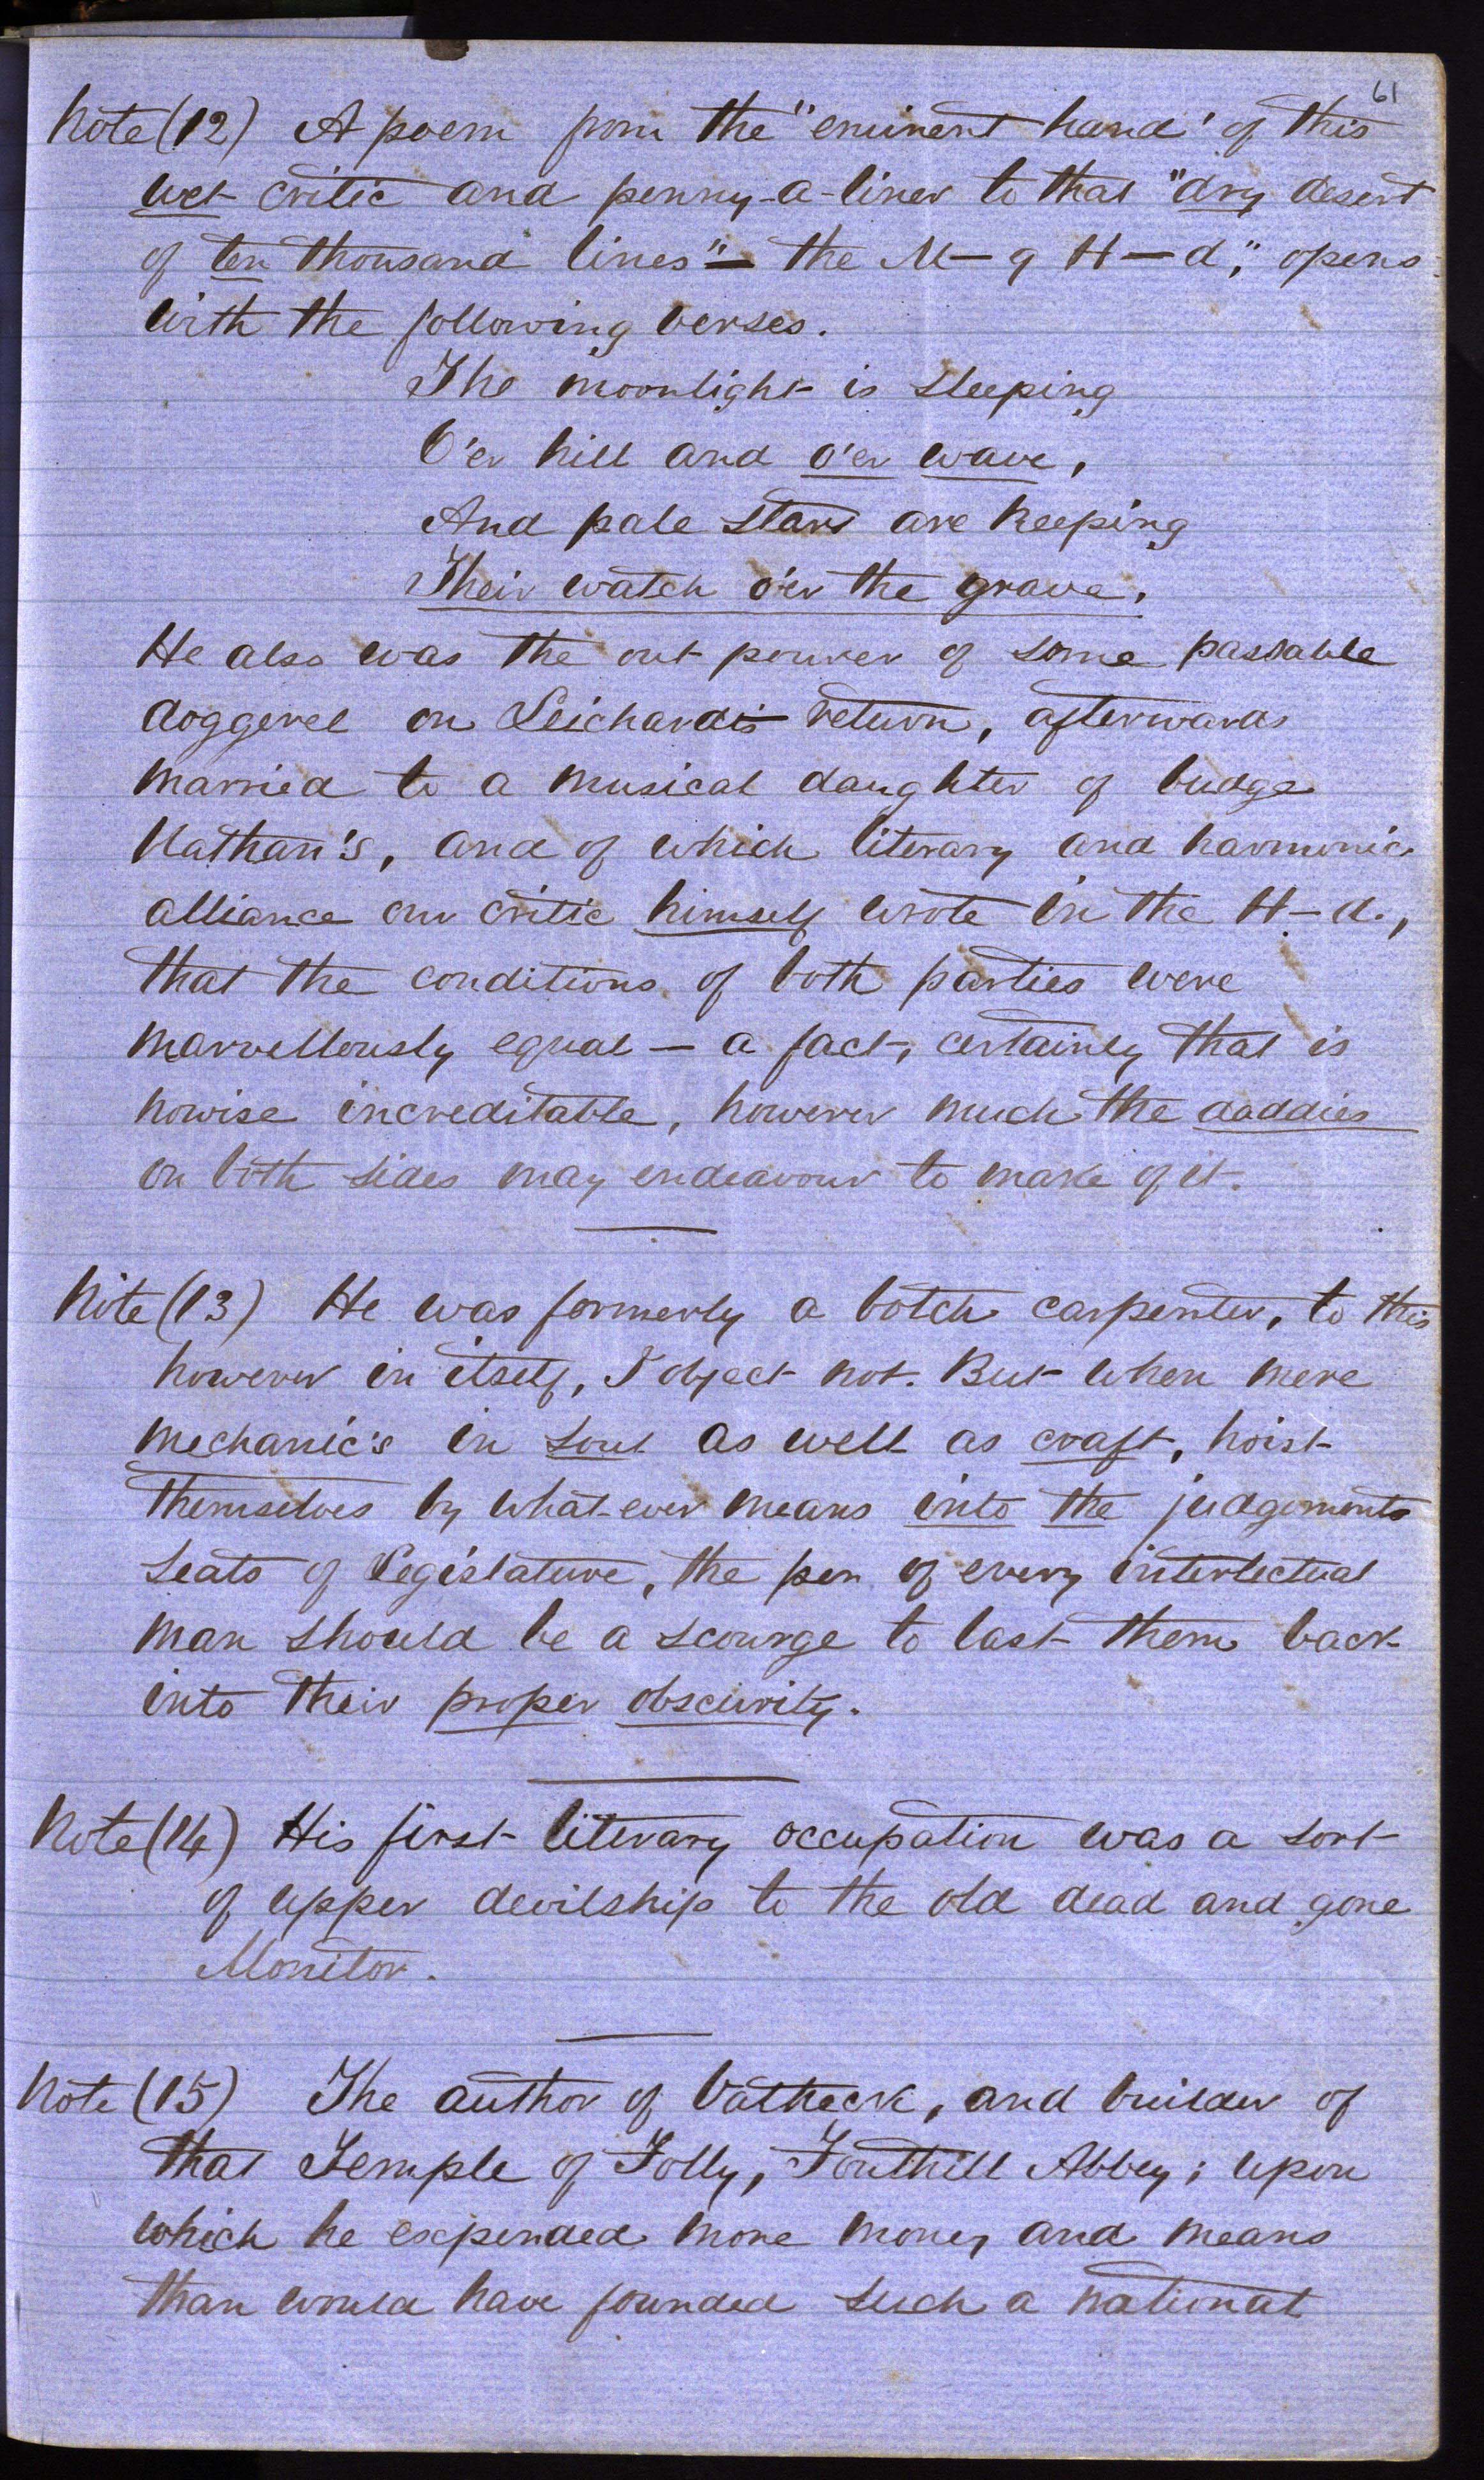 61
Note (12) A poem from the "eminent hand' of this
wet critic and penny-a-liner to that "dry desert
of ten thousand lines" — the M—g H—d," opens
with the following verses.
The moonlight is sleeping
O'er hill and o'er wave,
And pale stars are keeping
Their watch o'er the grave.
He also was the out pourer of some passable
doggerel on Leichardt's return, afterwards
married to a musical daughter of budge
Nathan's, and of which literary and harmonic
alliance our critic himself wrote in the H—d.,
that the conditions of both parties were
marvellously equal — a fact, certainly that is
nowise increditable, however much the daddies
on both sides may endeavour to make of it.
Note (13) He was formerly a botch carpenter, to this
however in itself, I object not. But when mere
mechanic's in soul as well as craft, hoist
themselves by what-ever means into the judgements
seats of Legislature, the pen of every interlectual
man should be a scourge to last them back
into their proper obscurity.
Note (14) His first literary occupation was a sort
of upper devilship to the old dead and gone
Monitor.
Note (15) The author of Vatheck, and builder of
that Temple of Folly, Fonthill Abbey; upon
which he expended more money and means
than would have founded such a national